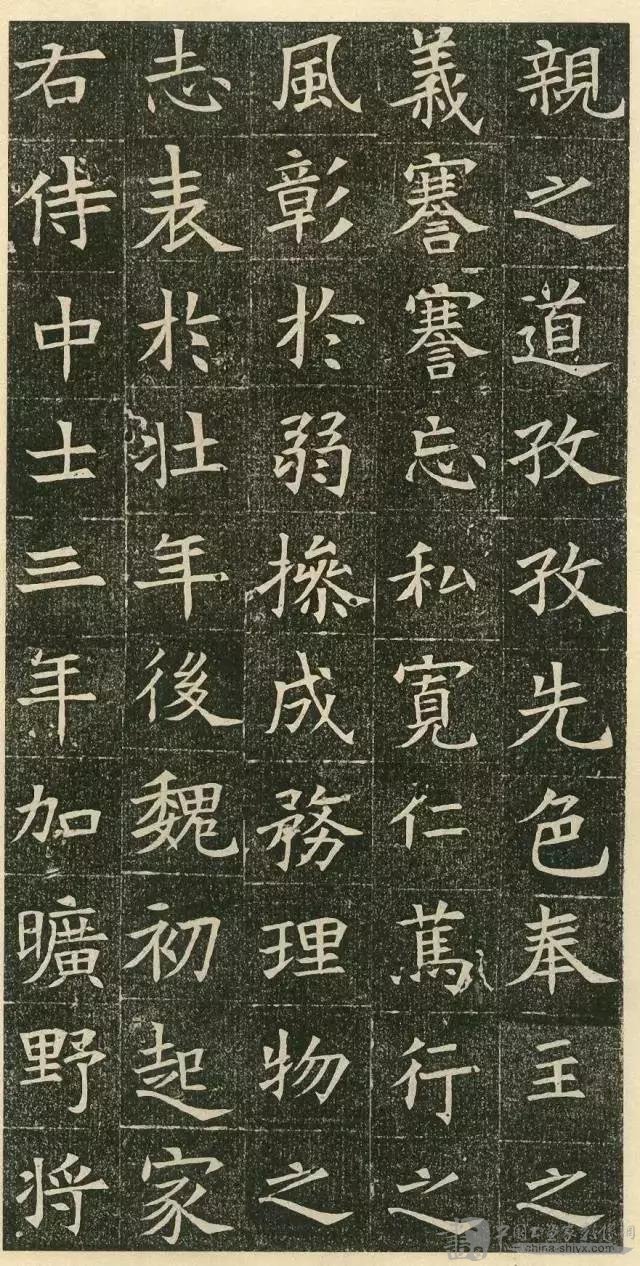 親之道孜孜先色奉主之
義謇謇忘私寛仁篤行之
風彰於弱操成務理物之
志表於壯年後魏初起家
右侍中士三年加曠野将
china-shiyx.com